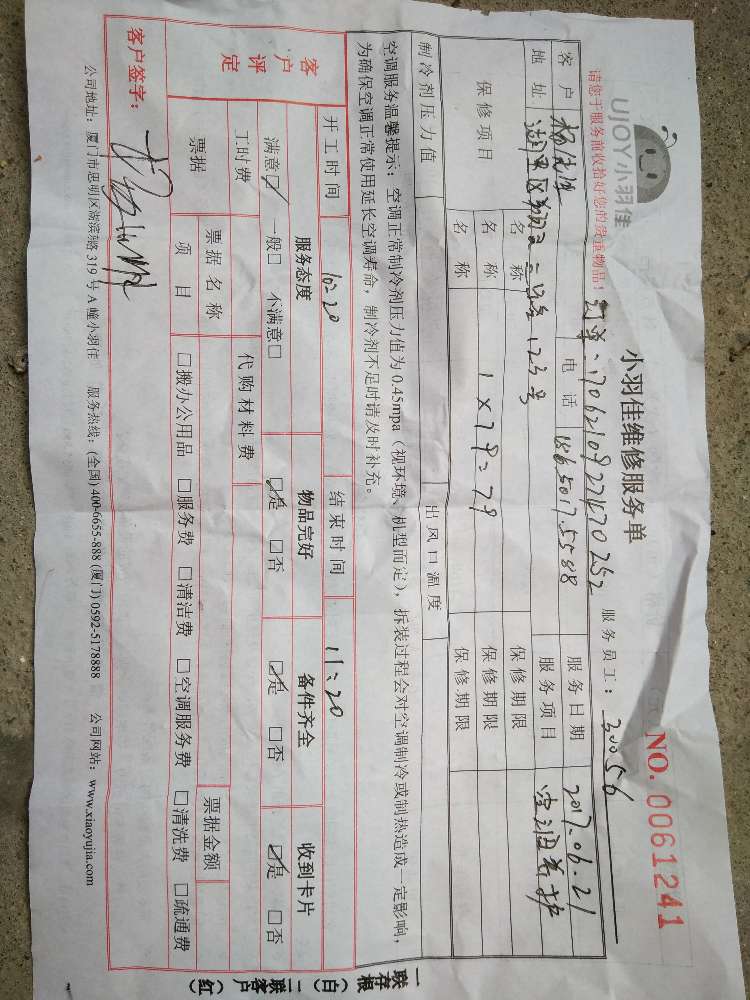 UJOY小羽佳
小羽佳维修服务单
NO. 0061241
请您于服务前收拾好您的贵重物品！
服务员工：30056
订单：170621092247 0252
客户 杨先生 电话 18650175588 服务日期 2017.06.21
地址 湖里区 123号 服务项目 空调养护
保修项目 名称 保修期限
名称 1×79=79 保修期限
名称 保修期限
制冷剂压力值 出风口温度
空调服务温馨提示：空调正常制冷剂压力值为 0.45mpa（视环境、机型而定），拆装过程会对空调制冷或制热造成一定影响，
为确保空调正常使用延长空调寿命，制冷剂不足时请及时补充。
开工时间 10:20 结束时间 11:20
客户评定 服务态度 物品完好 备件齐全 收到卡片
满意☑ 一般□ 不满意□ ☑是 □否 ☑是 □否 ☑是 □否
工时费 代购材料费
票据 票据名称 票据金额
项目 □搬办公用品 □服务费 □清洁费 □空调服务费 □清洗费 □疏通费
客户签字：
公司地址：厦门市思明区湖滨东路 319 号 A 幢小羽佳 服务热线：(全国) 400-6655-888 (厦门) 0592-5178888 公司网站：www.xiaoyujia.com
一联存根（白）二联客户（红）